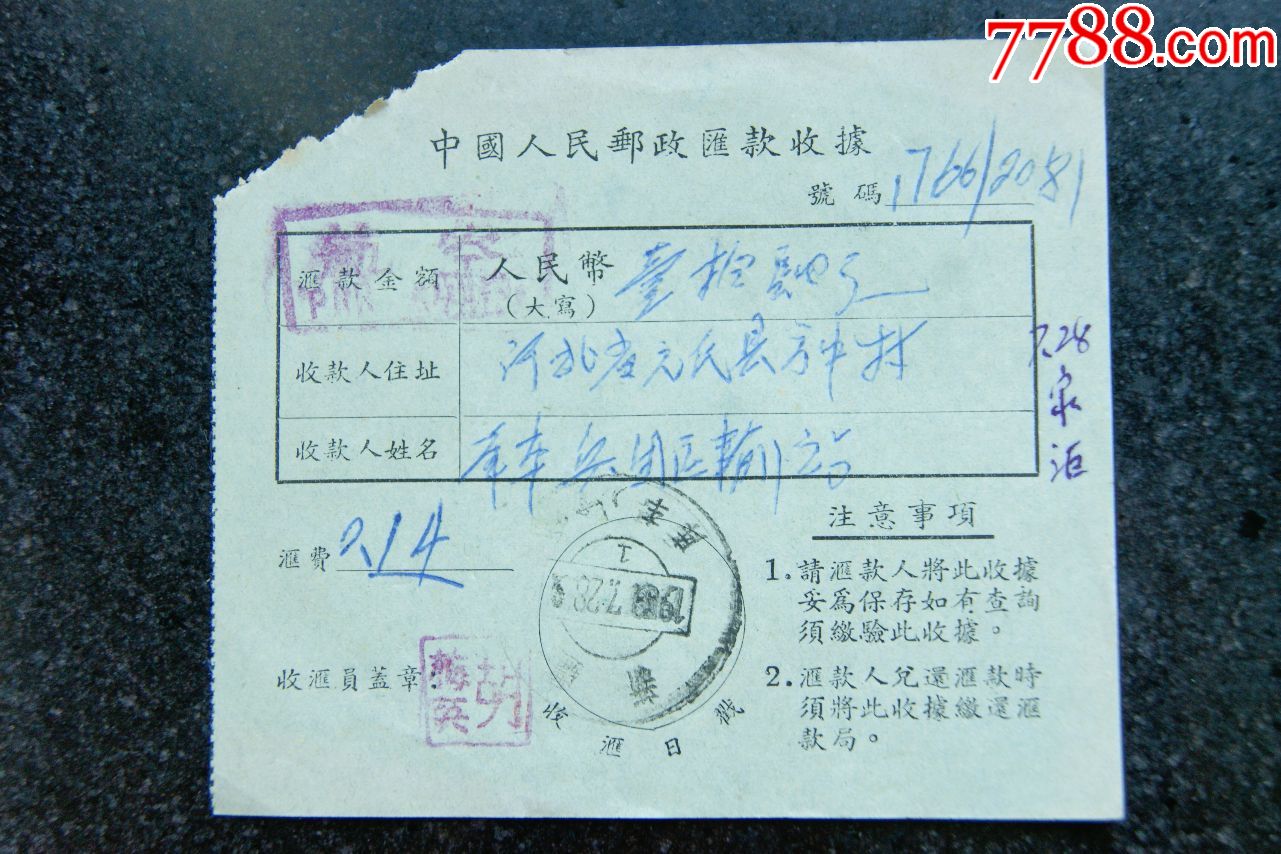 7788.com
中國人民郵政匯款收據
號碼 1766/2081
匯款金額 人民幣 壹拾 元
(大寫)
收款人住址 河北省元氏县 中村
收款人姓名 兵团区輸
7.28
家
汇
匯費 0.14
1
7.28
收匯員蓋章
胡
梅英
收匯日戳
注意事項
1.請匯款人將此收據
妥爲保存如有查詢
須繳驗此收據。
2.匯款人兌還匯款時
須將此收據繳還匯
款局。